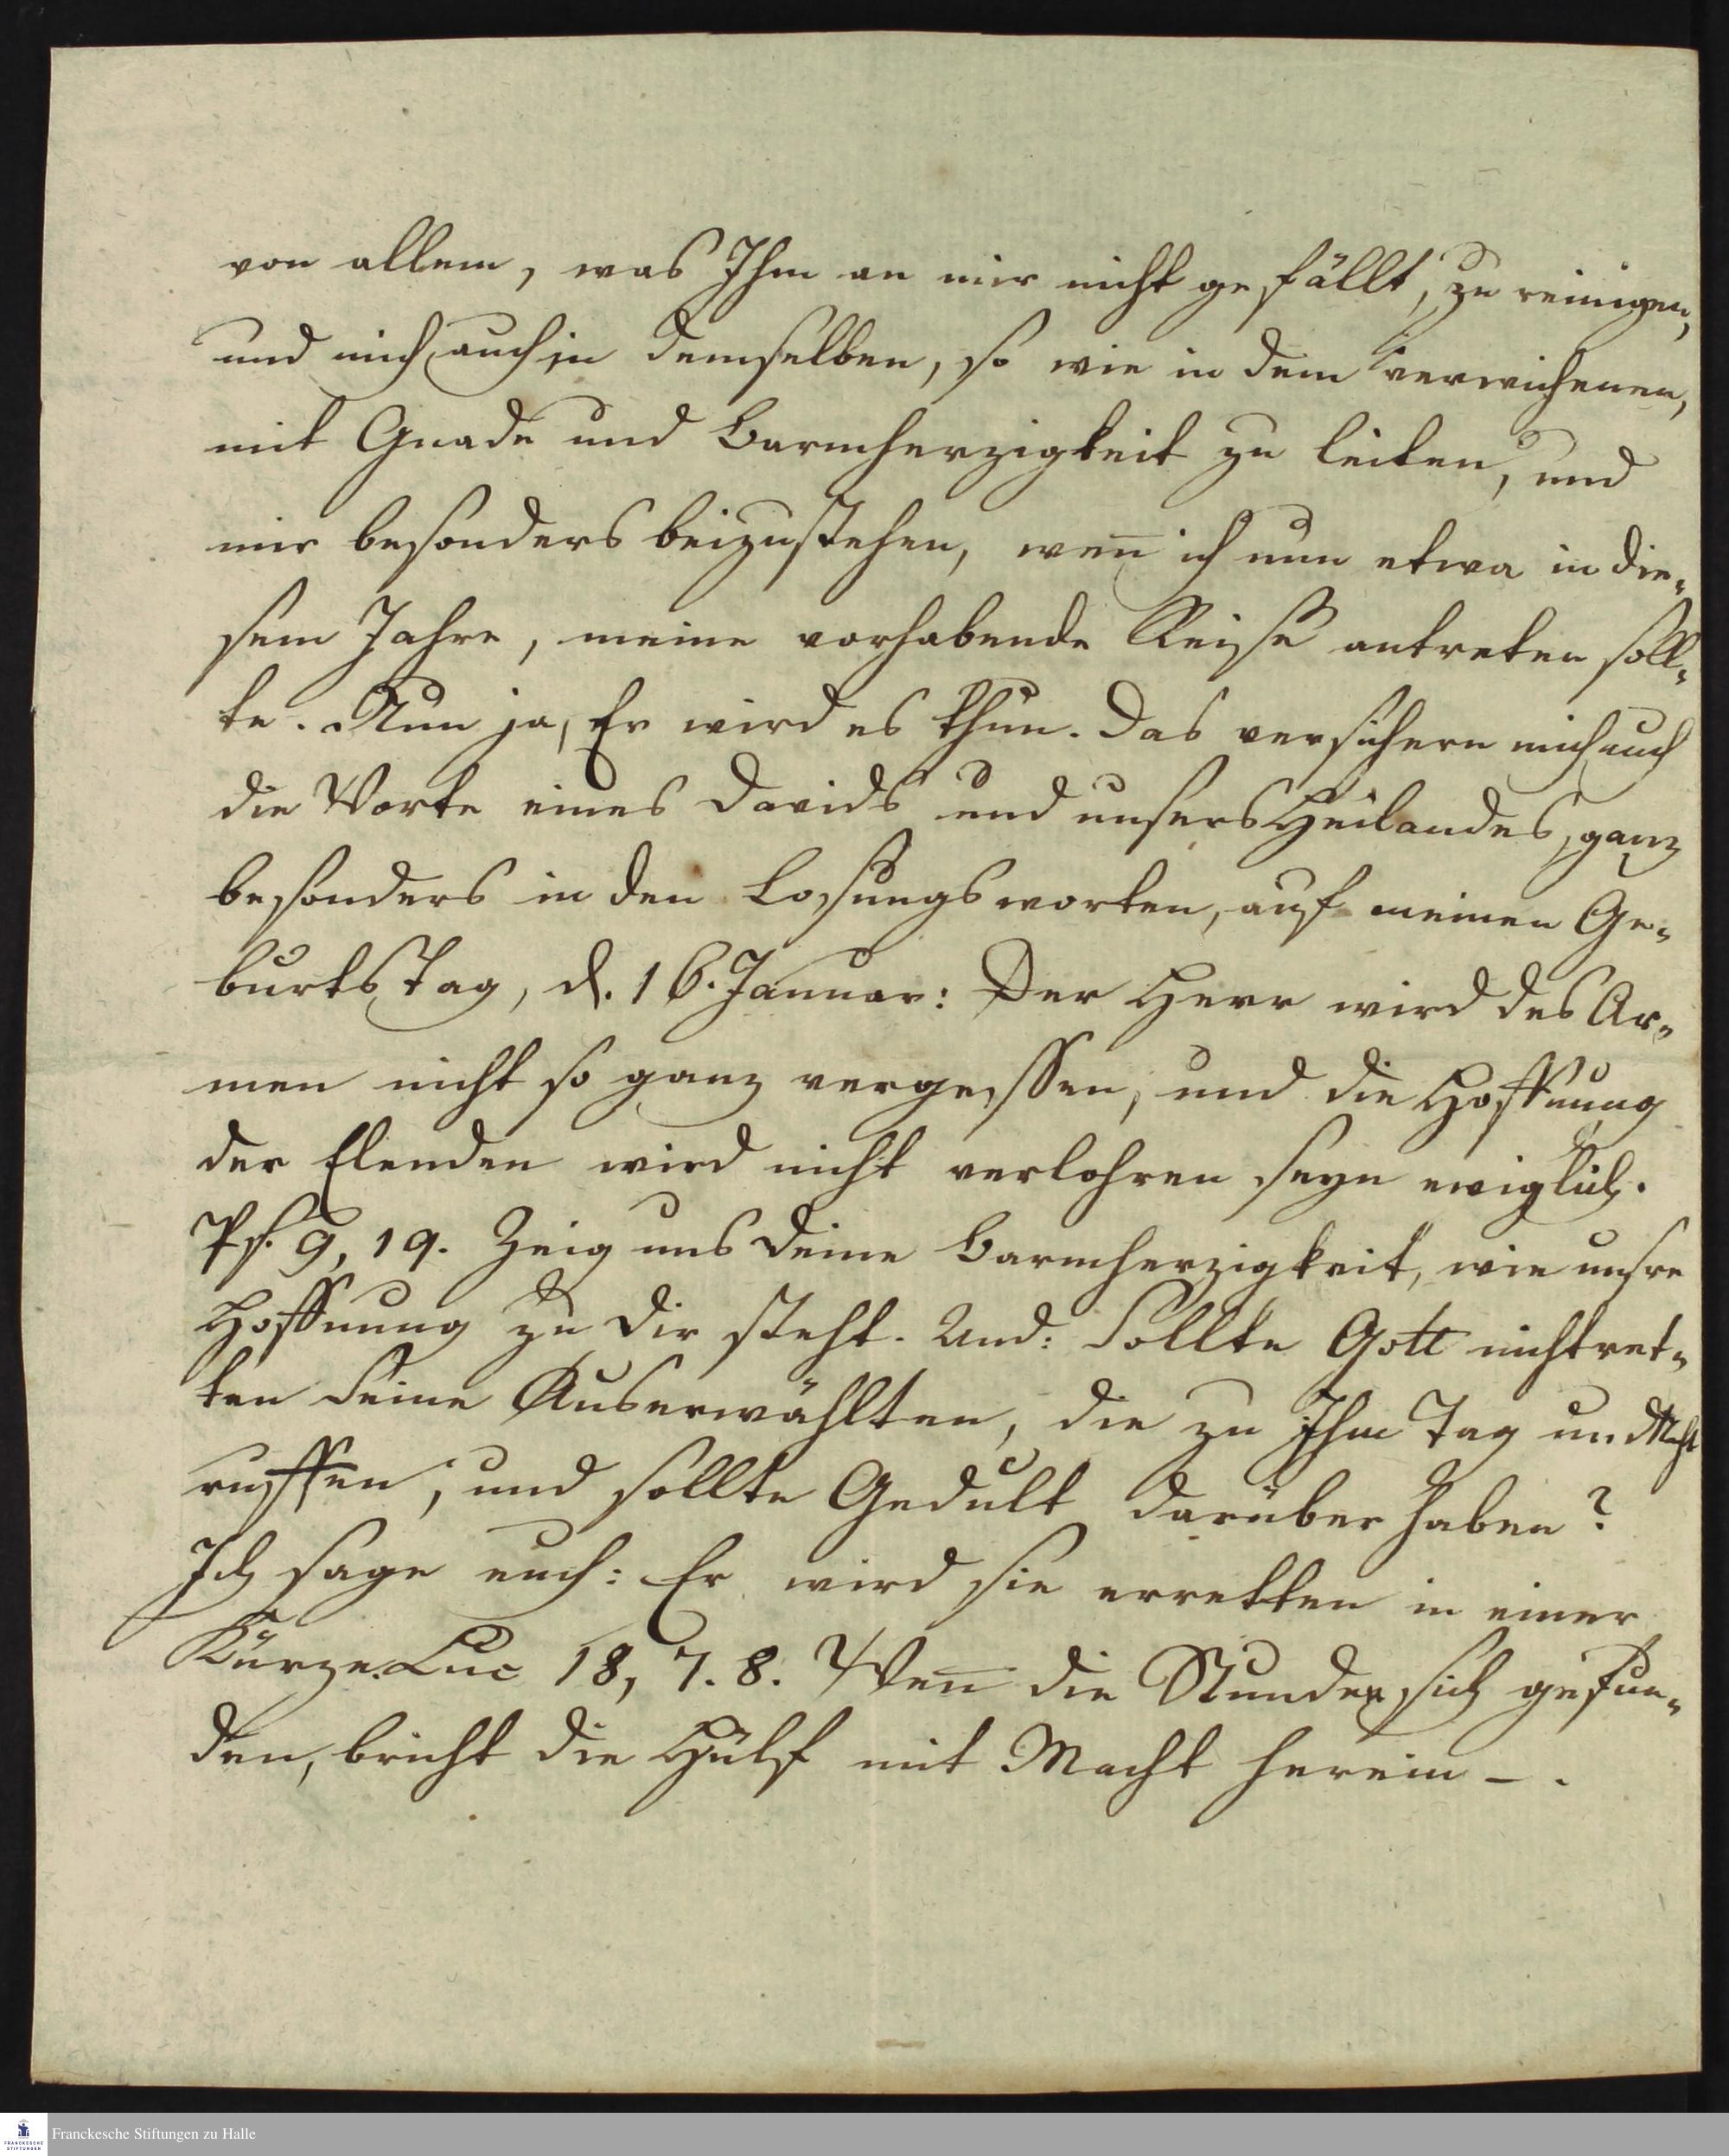 von allem, was Ihm an mir nicht gefällt, zu reinigen,
und mich auch in demselben, so wie in dem verwichenen,
mit Gnade und Barmherzigkeit zu leiten, und
mir besonders beizustehen, wen̅ ich nun etwa in die¬
sem Jahre, meine vorhabende Reise antreten soll¬
te. Nun ja, Er wird es thun. Das versichern mich auch
die Worte eines Davids und unsers Heilandes, ganz
besonders in den Losungsworten, auf meinen Ge¬
burtstag, d. 16. Januar: Der Herr wird des Ar¬
men nicht so ganz vergessen, und die Hoffnung
der Elenden wird nicht verlohren seyn ewiglich.
Ps. 9, 19. Zeig uns deine Barmherzigkeit, wie unsre
Hoffnung zu dir steht. Und: Sollte Gott nicht ret¬
ten Seine Auserwählten, die zu Ihm Tag und Nacht
ruffen, und sollte Gedult darüber haben?
Ich sage euch: Er wird sie erretten in einer
Kürze. Luc 18, 7. 8. Wen̅ die Stunden sich gefun¬
den, bricht die Hülf mit Macht herein – .
FRANCKESCHE STIFTUNGEN
Franckesche Stiftungen zu Halle